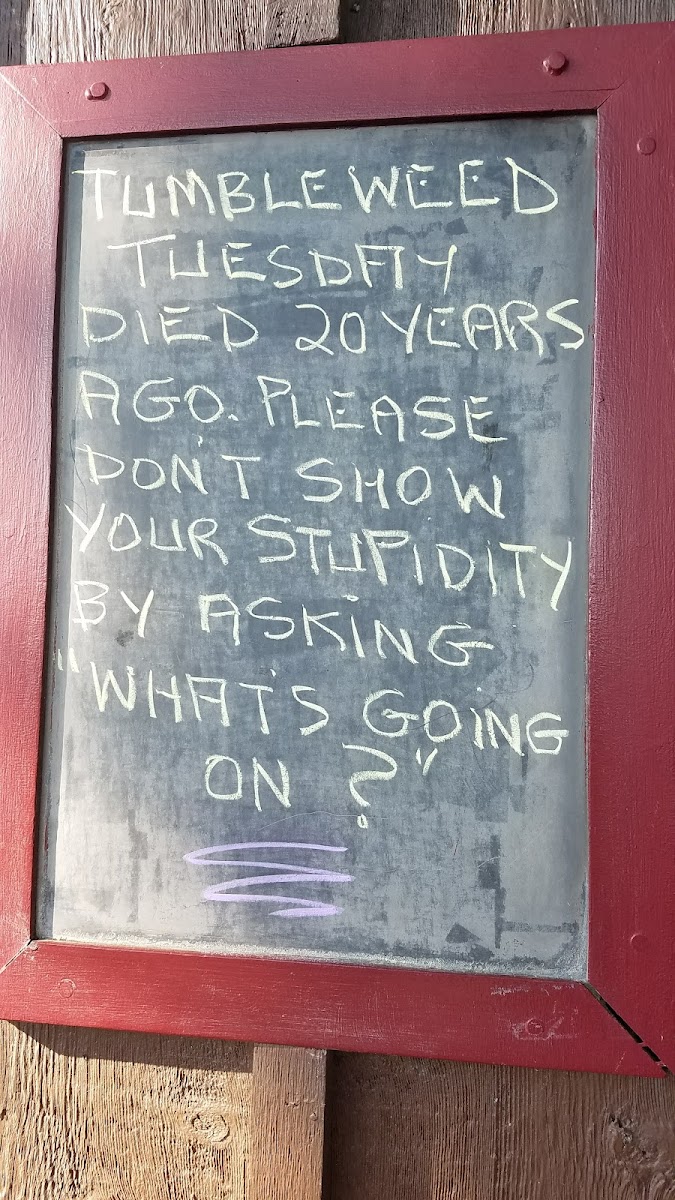 TUMBLEWEED
TUESDAY
DIED 20 YEARS
AGO. PLEASE
DON'T SHOW
YOUR STUPIDITY
BY ASKING
"WHAT'S GOING
ON?"